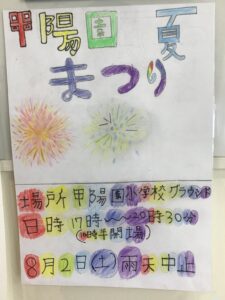 甲陽園 夏
まつり
場所 甲陽園小学校グラウンド
日時 17時〜20時30分
(16時半開場)
8月2日(土)雨天中止